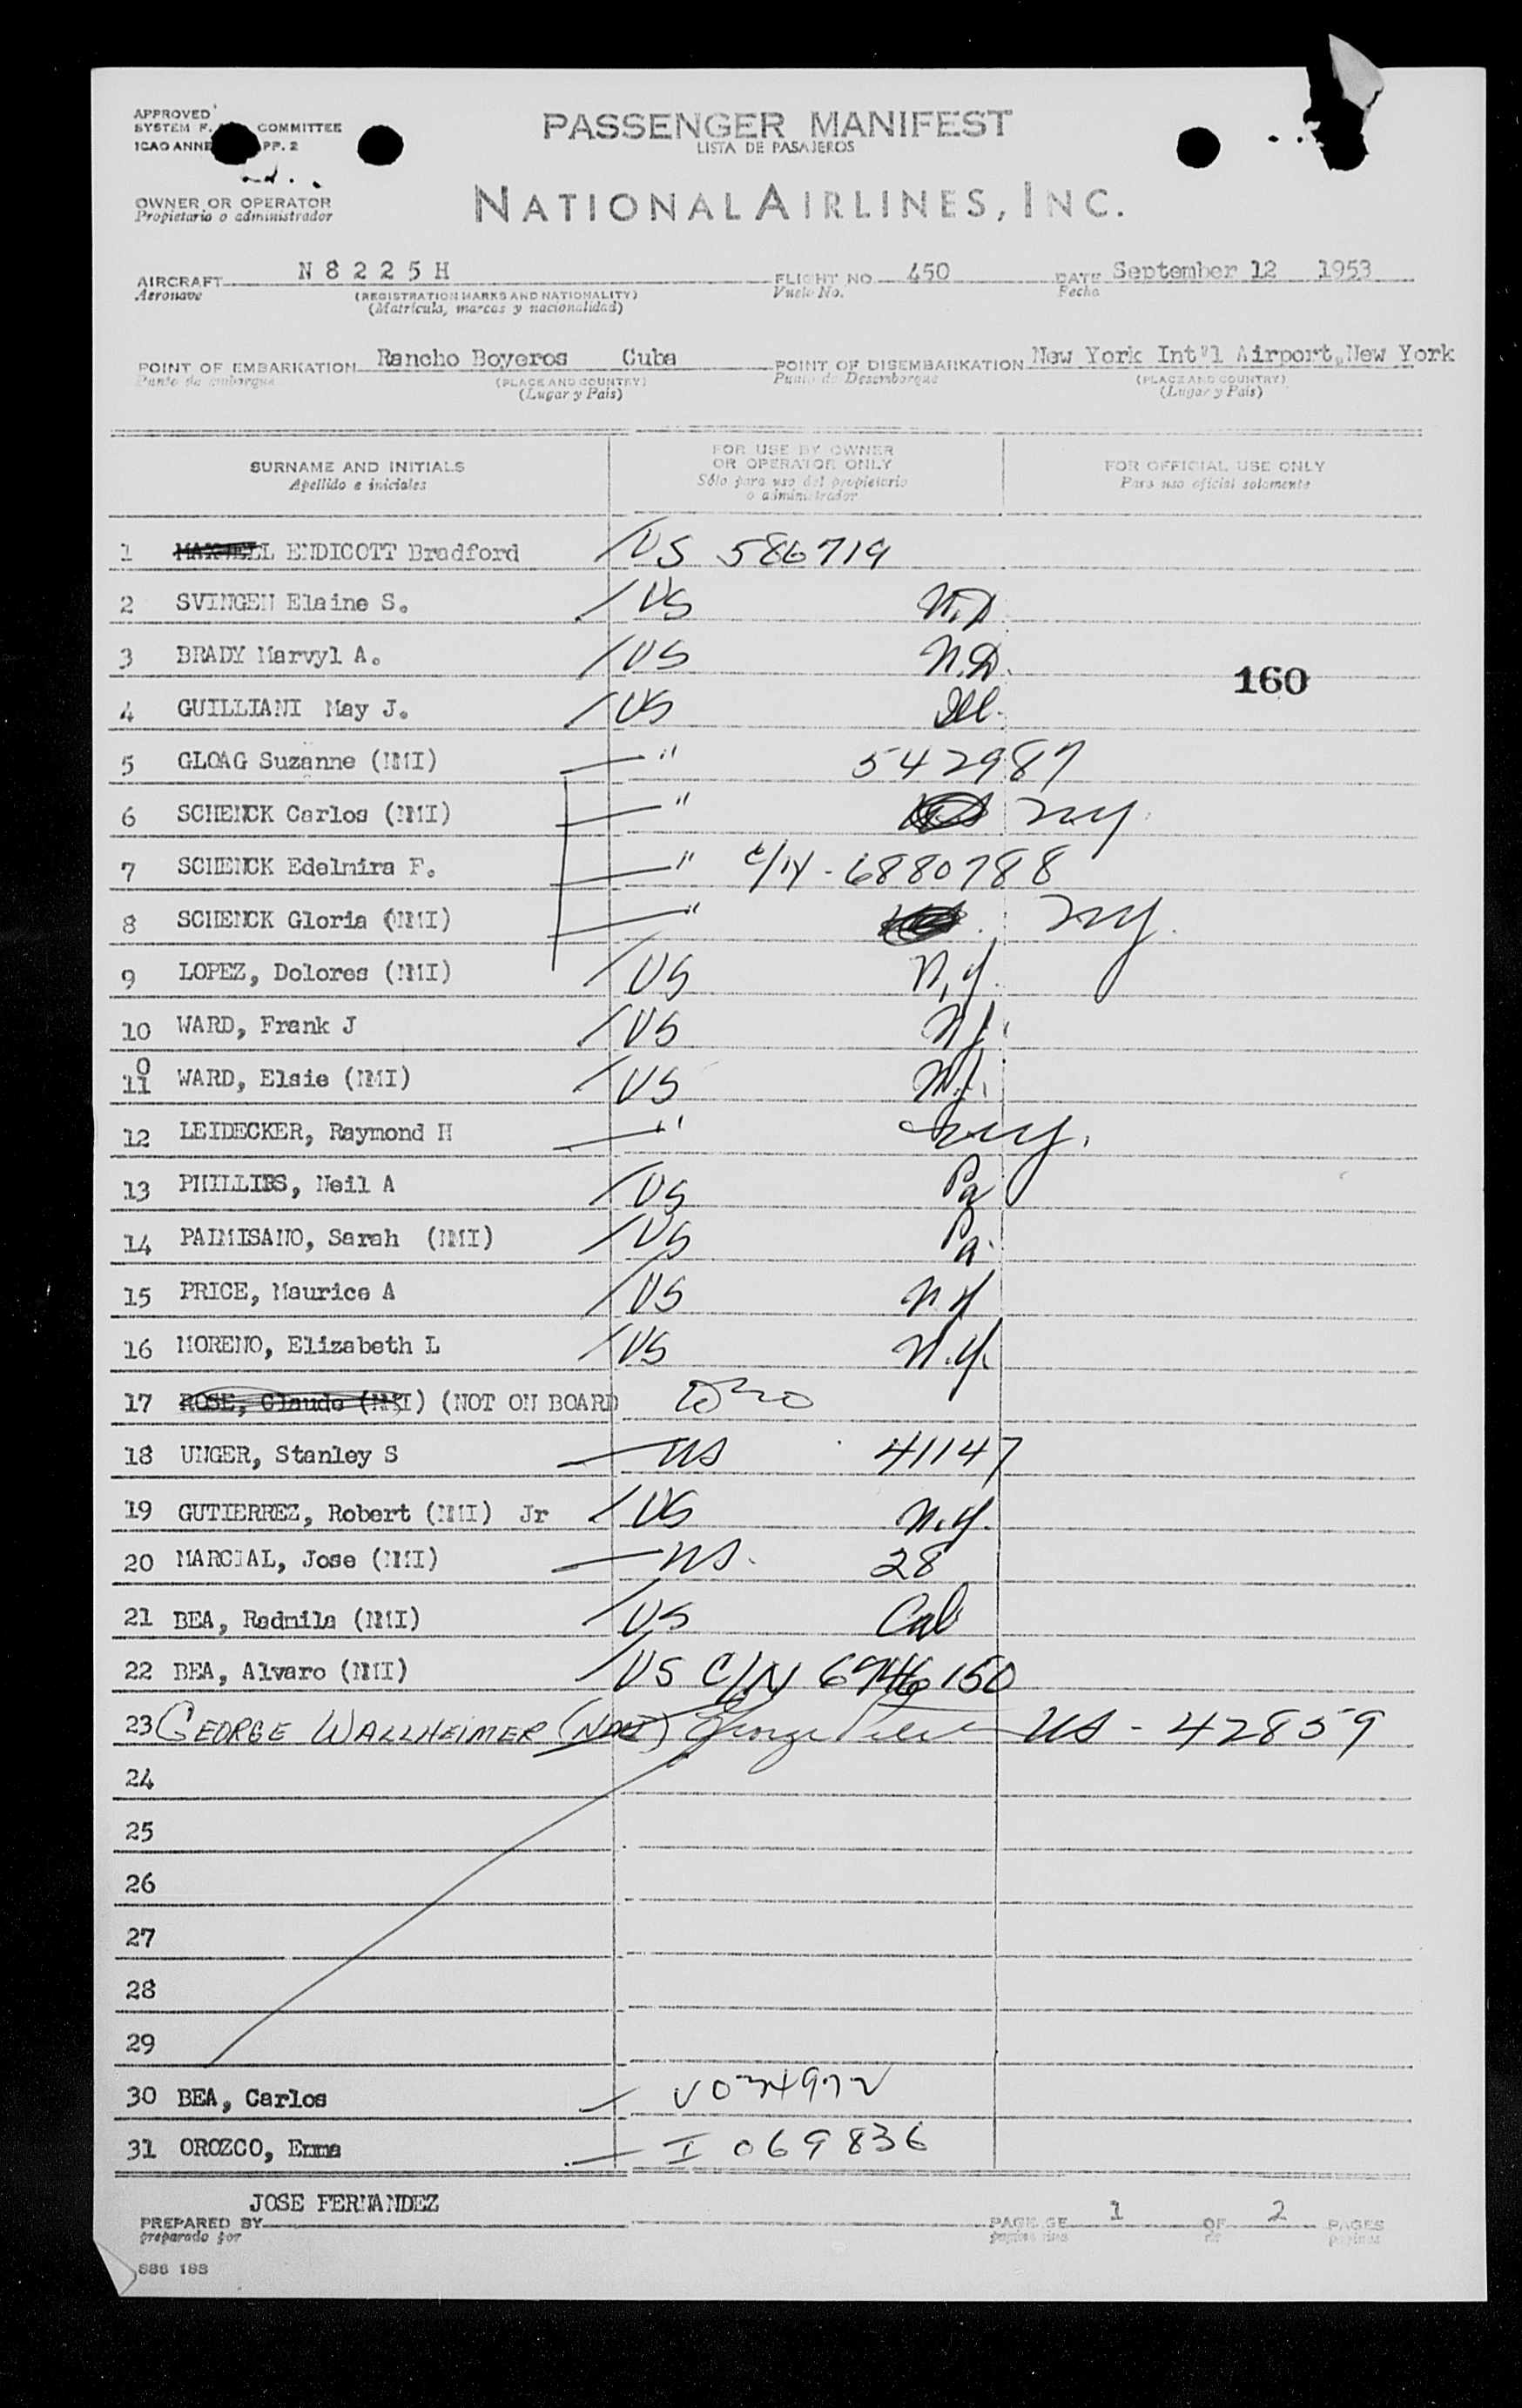 APPROVED
SYSTEM F. COMMITTEE
ICAO ANNE PP. 2
PASSENGER MANIFEST
LISTA DE PASAJEROS
OWNER OR OPERATOR
Propietario o administrador
NATIONAL AIRLINES, INC.
AIRCRAFT N 8 2 2 5 H FLIGHT NO. 450 DATE September 12 1953
Aeronave (REGISTRATION MARKS AND NATIONALITY) Vuelo No. Fecha
(Matrícula, marcas y nacionalidad)
POINT OF EMBARKATION Rancho Boyeros Cuba POINT OF DISEMBARKATION New York Int'l Airport, New York
Punto de embarque (PLACE AND COUNTRY) Punto de Desembarque (PLACE AND COUNTRY)
(Lugar y País) (Lugar y País)
SURNAME AND INITIALS FOR USE BY OWNER OR OPERATOR ONLY FOR OFFICIAL USE ONLY
Apellido e iniciales Sólo para uso del propietario o administrador Para uso oficial solamente
1 ENDICOTT Bradford US 586719
2 SVINGEN Elaine S. US N.D.
3 BRADY Marvyl A. US N.D.
160
4 GUILLIANI May J. US Ill.
5 GLOAG Suzanne (NMI) " 542987
6 SCHENCK Carlos (NMI) " NY.
7 SCHENCK Edelmira F. " C/N - 6880788
8 SCHENCK Gloria (NMI) " NY.
9 LOPEZ, Dolores (NMI) US N.Y.
10 WARD, Frank J US NJ.
11 WARD, Elsie (NMI) US N.J.
12 LEIDECKER, Raymond H " NY.
13 PHILLIBS, Neil A US Pa
14 PALMISANO, Sarah (NMI) US Pa.
15 PRICE, Maurice A US NY
16 MORENO, Elizabeth L US N.Y.
17 ROSE, Claude (NMI) (NOT ON BOARD
18 UNGER, Stanley S US 41147
19 GUTIERREZ, Robert (NMI) Jr US N.Y.
20 MARCIAL, Jose (NMI) US. 28
21 BEA, Radmila (NMI) US Cal
22 BEA, Alvaro (NMI) US C/N 6946150
23 GEORGE WALLHEIMER (NMI) US - 42859
24
25
26
27
28
29
30 BEA, Carlos
31 OROZCO, Emma I 069836
JOSE FERNANDEZ
PREPARED BY PAGE 1 OF 2 PAGES
preparado por